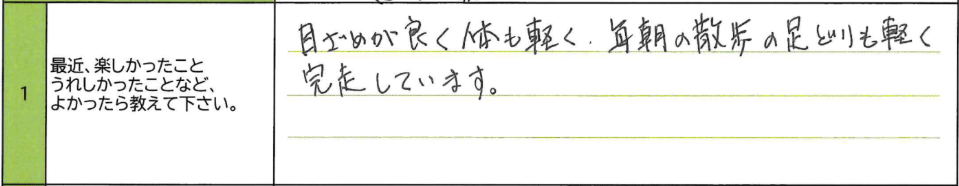 1
最近、楽しかったこと
うれしかったことなど、
よかったら教えて下さい。
目ざめが良く体も軽く、毎朝の散歩の足どりも軽く
完走しています。